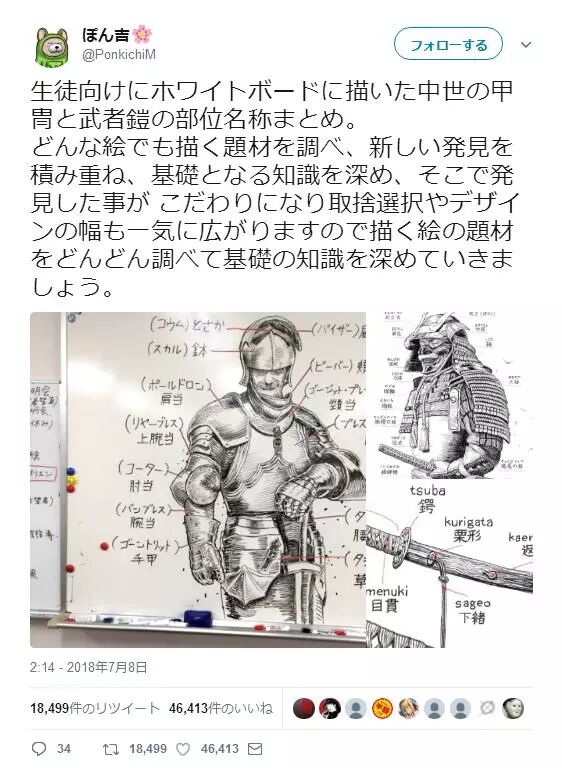 ぽん吉🌸
@PonkichiM
フォローする
生徒向けにホワイトボードに描いた中世の甲
冑と武者鎧の部位名称まとめ。
どんな絵でも描く題材を調べ、新しい発見を
積み重ね、基礎となる知識を深め、そこで発
見した事が こだわりになり取捨選択やデザイ
ンの幅も一気に広がりますので描く絵の題材
をどんどん調べて基礎の知識を深めていきま
しょう。
(コウム)とさか
(バイザー)
(スカル)鉢
(ビーバー)頬
(ポールドロン)
肩当
(ゴージット・プレ
頸当
(リヤーブレス)
上腕当
(ブレス
(コーター)
肘当
(バンブレス)
腕当
(ゴーントリット)
手甲
(タ
腰
(タ
草
tsuba
鍔
kurigata
栗形
kaer
返
menuki
目貫
sageo
下緒
2:14 - 2018年7月8日
18,499件のリツイート 46,413件のいいね
34 18,499 46,413